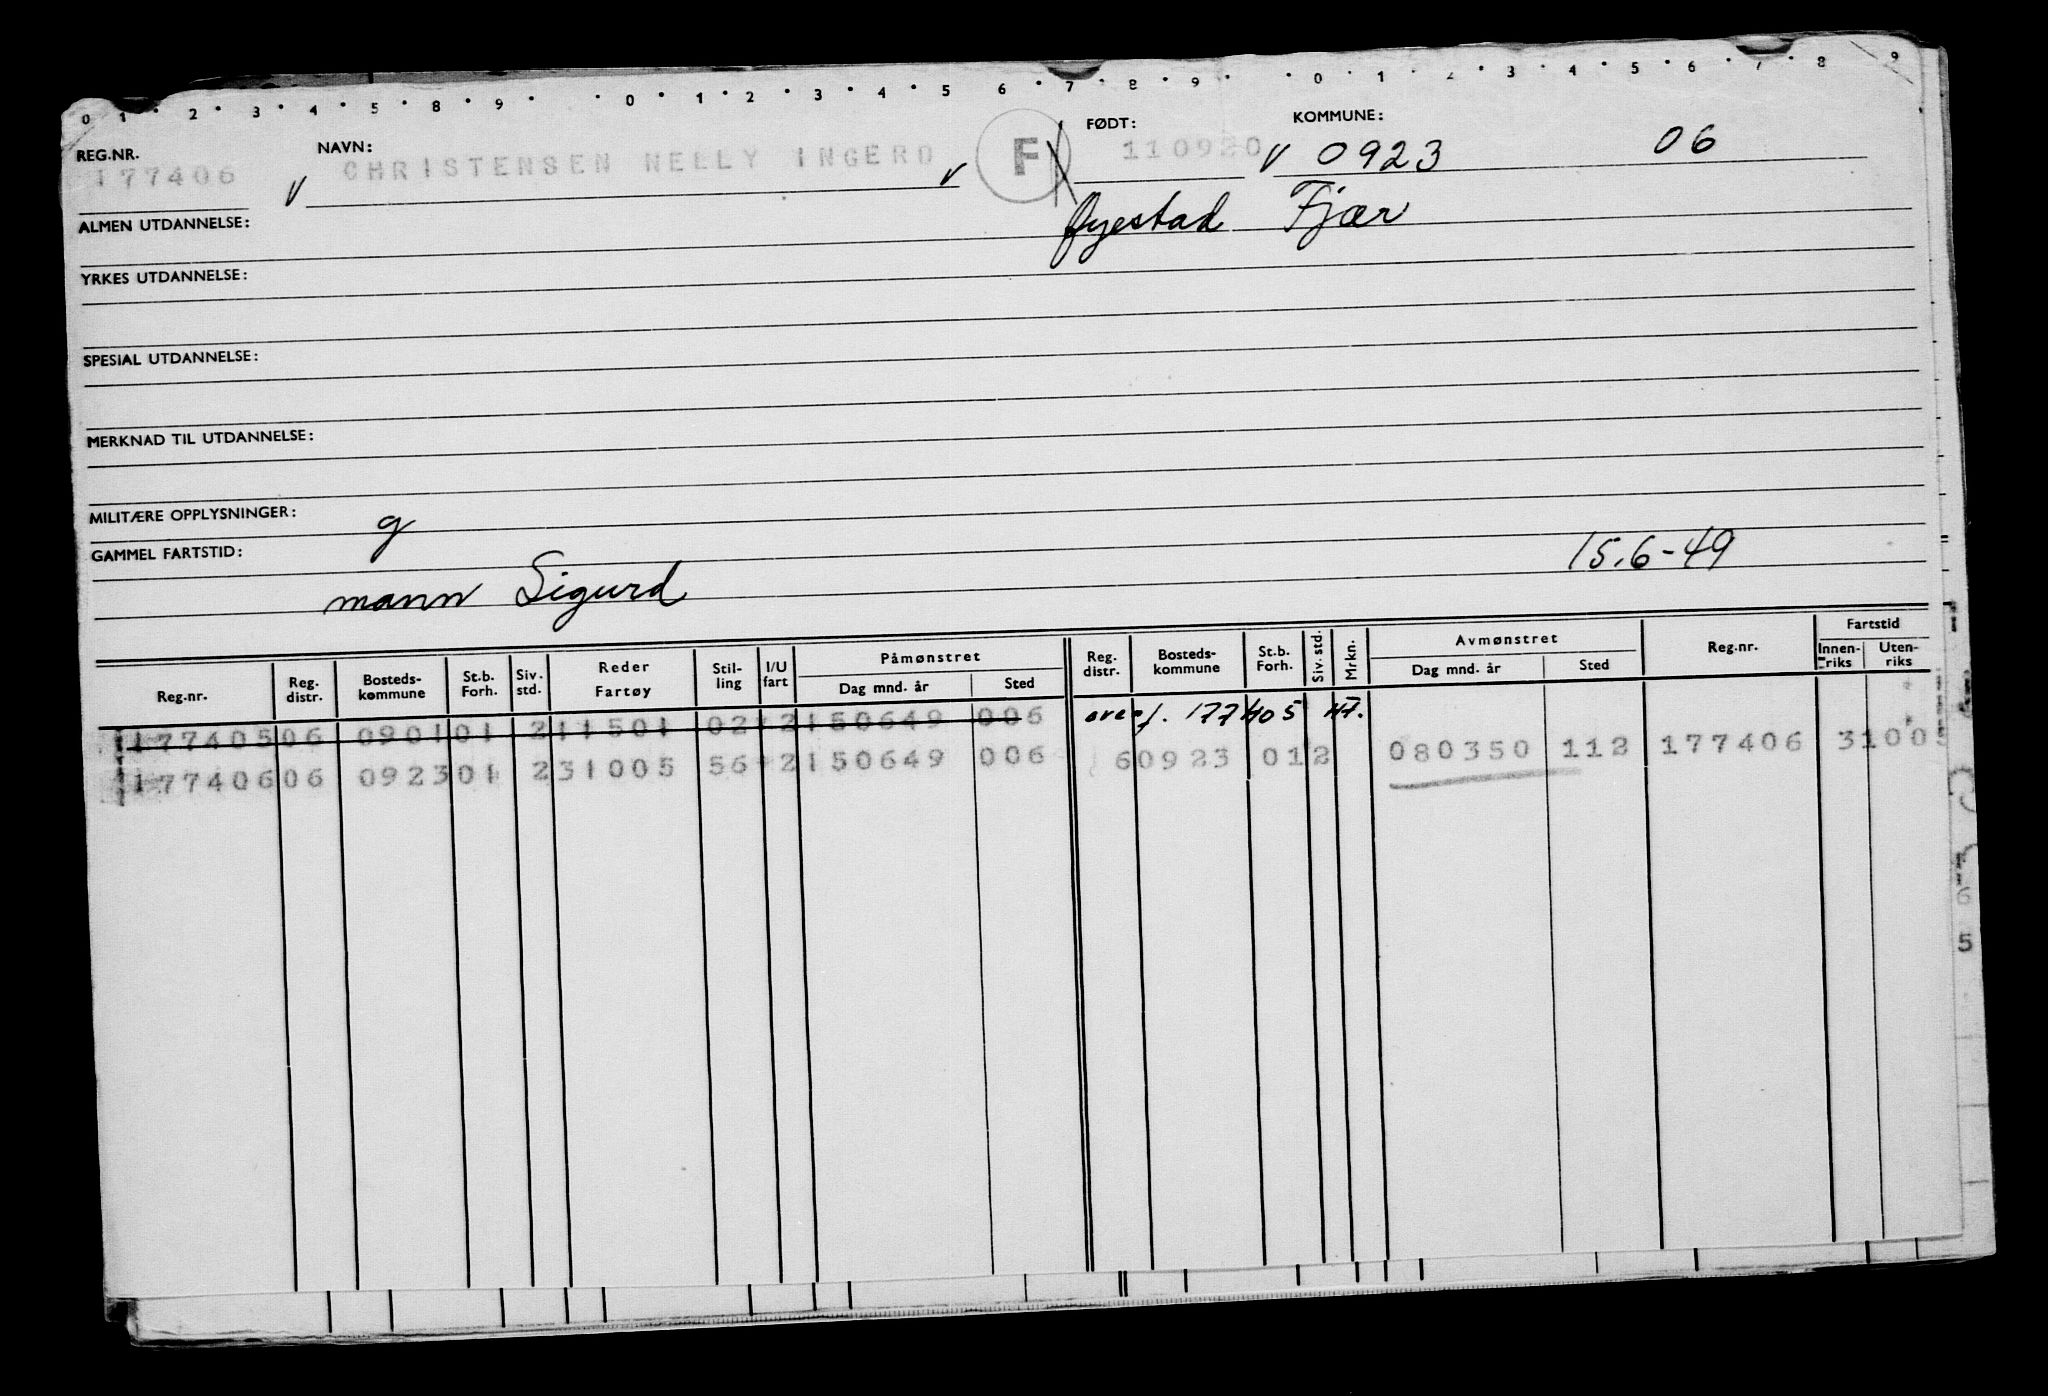 0 1 · 2 · 3 · 4 · 5 · 8 · 9 · · 0 · 1 · 2 · 3 · 4 · 5 · 6 · 7 · 8 · 9 · · 0 · 1 · 2 · 3 · 4 · 5 · 6 · 7 · 8 · 9
REG.NR. NAVN: FØDT: KOMMUNE:
177406 V CHRISTENSEN NELLY INGERD V F 110920 V 0923 06
ALMEN UTDANNELSE: Øyestad Fjær
YRKES UTDANNELSE:
SPESIAL UTDANNELSE:
MERKNAD TIL UTDANNELSE:
MILITÆRE OPPLYSNINGER: g
GAMMEL FARTSTID: 15.6-49
mann Sigurd
Reg.nr. Reg. distr. Bosteds-kommune St.b. Forh. Siv. std. Reder Fartøy Stil-ling I/U fart Påmønstret Dag mnd. år Sted Reg. distr. Bosteds-kommune St.b. Forh. Siv. std. Mrkn. Avmønstret Dag mnd. år Sted Reg.nr. Fartstid Innen-riks Uten-riks
177405 06 0901 01 2 11501 02 2 150649 006 overf. 177405 H7.
177406 06 0923 01 2 31005 56 2 150649 006 6 0923 01 2 080350 112 177406 31005
6
5